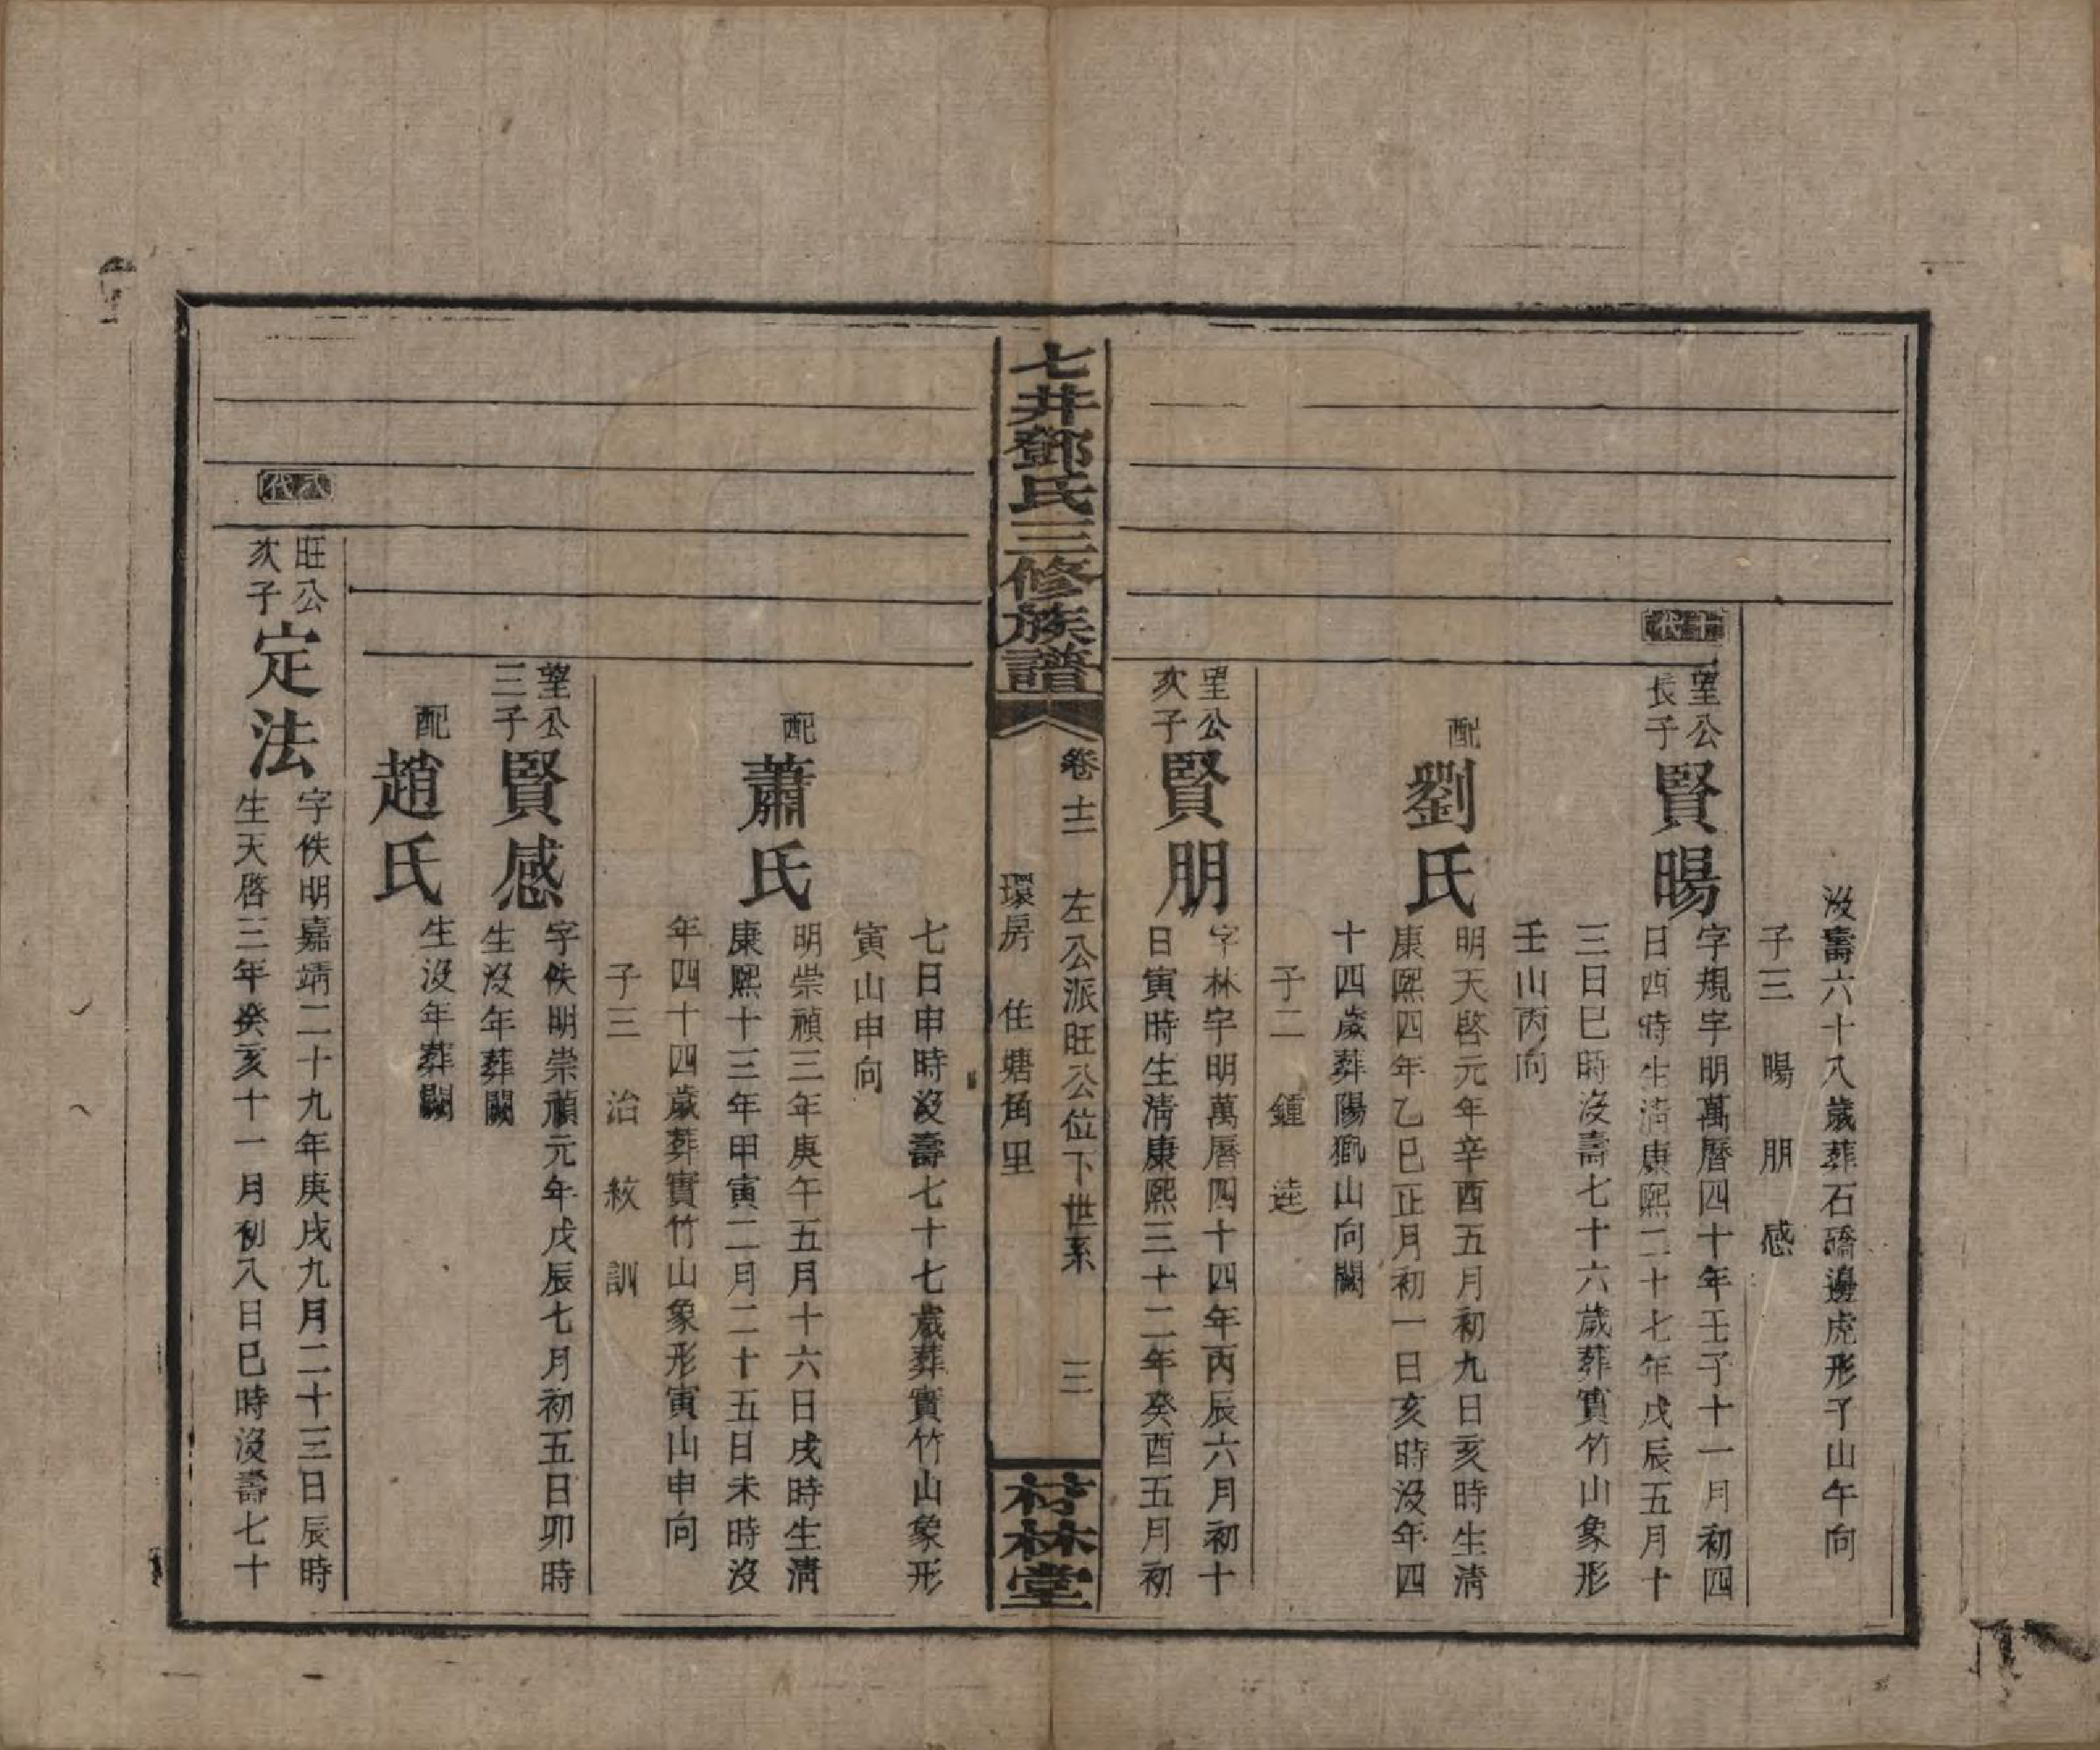 沒壽六十八歲葬石磱邊虎形子山午向
子三 暘 朋 感
十代
望公長子
賢暘
字規字明萬曆四十年壬子十一月初四
日酉時生清康熙二十七年戊辰五月十
三日巳時沒壽七十六歲葬實竹山象形
壬山丙向
配
劉氏
明天啓元年辛酉五月初九日亥時生清
康熙四年乙巳正月初一日亥時沒年四
十四歲葬陽山向闕
子二 鍾 逵
望公次子
賢朋
字林字明萬曆四十四年丙辰六月初十
日寅時生清康熙三十二年癸酉五月初
七井鄧氏三修族譜
卷十三 左公派旺公位下世系 三
環房 住塘角里
竹林堂
七日申時沒壽七十七歲葬實竹山象形
寅山申向
配
蕭氏
明崇禎三年庚午五月十六日戌時生清
康熙十三年甲寅二月二十五日未時沒
年四十四歲葬實竹山象形寅山申向
子三 治 紋 訓
望公三子
賢感
字佚明崇禎元年戊辰七月初五日卯時
生沒年葬闕
配
趙氏
生沒年葬闕
八代
旺公次子
定法
字佚明嘉靖二十九年庚戌九月二十三日辰時
生天啓三年癸亥十一月初八日巳時沒壽七十